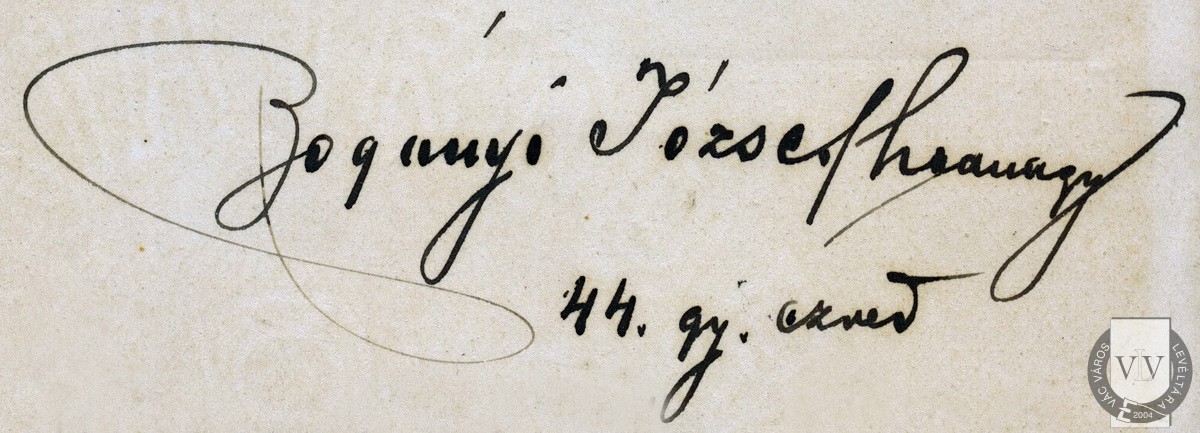 Bogányi József hadnagy
44. gy. ezred
VÁC VÁROS LEVÉLTÁRA
VLV
2004